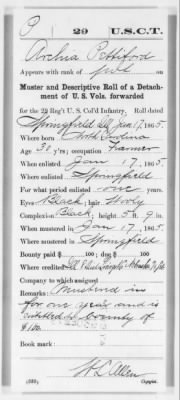 P 29 U.S.C.T.
Archia Pettiford
Appears with rank of Pvt on
Muster and Descriptive Roll of a Detach-
ment of U. S. Vols. forwarded
for the 29 Reg't U. S. Col'd Infantry. Roll dated
Springfield Ill Jan 17, 1865.
Where born North Carolina
Age 38 y'rs; occupation Farmer
When enlisted Jan 17, 1865.
Where enlisted Springfield
For what period enlisted one years.
Eyes Black; hair Wooly
Complexion Black; height 5 ft. 9 in.
When mustered in Jan 17, 1865.
Where mustered in Springfield
Bounty paid $ 100; due $ 100
Where credited
Company to which assigned
Remarks: Mustered in
for one year and is
entitled to bounty of
$100.
Book mark:
H L Allen
(339) Copyist.